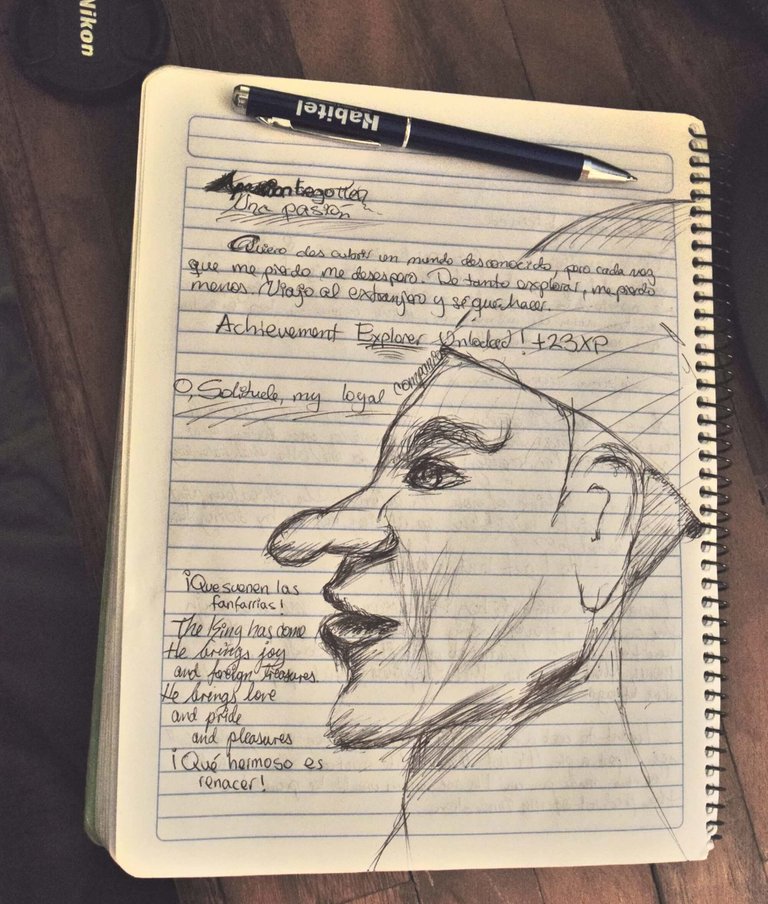 Nikon
Kabitel
Una pasión
Quiero descubrir un mundo desconocido, pero cada vez
que me pierdo me desespero. De tanto explorar, me pierdo
menos. Viajo al extranjero y sé que hacer.
Achievement Explorer Unlocked! +23XP
O, Solitude, my loyal companion
¡Que suenen las
fanfarrias!
The King has come
He brings joy
and foreign treasures
He brings love
and pride
and pleasures
¡Qué hermoso es
renacer!